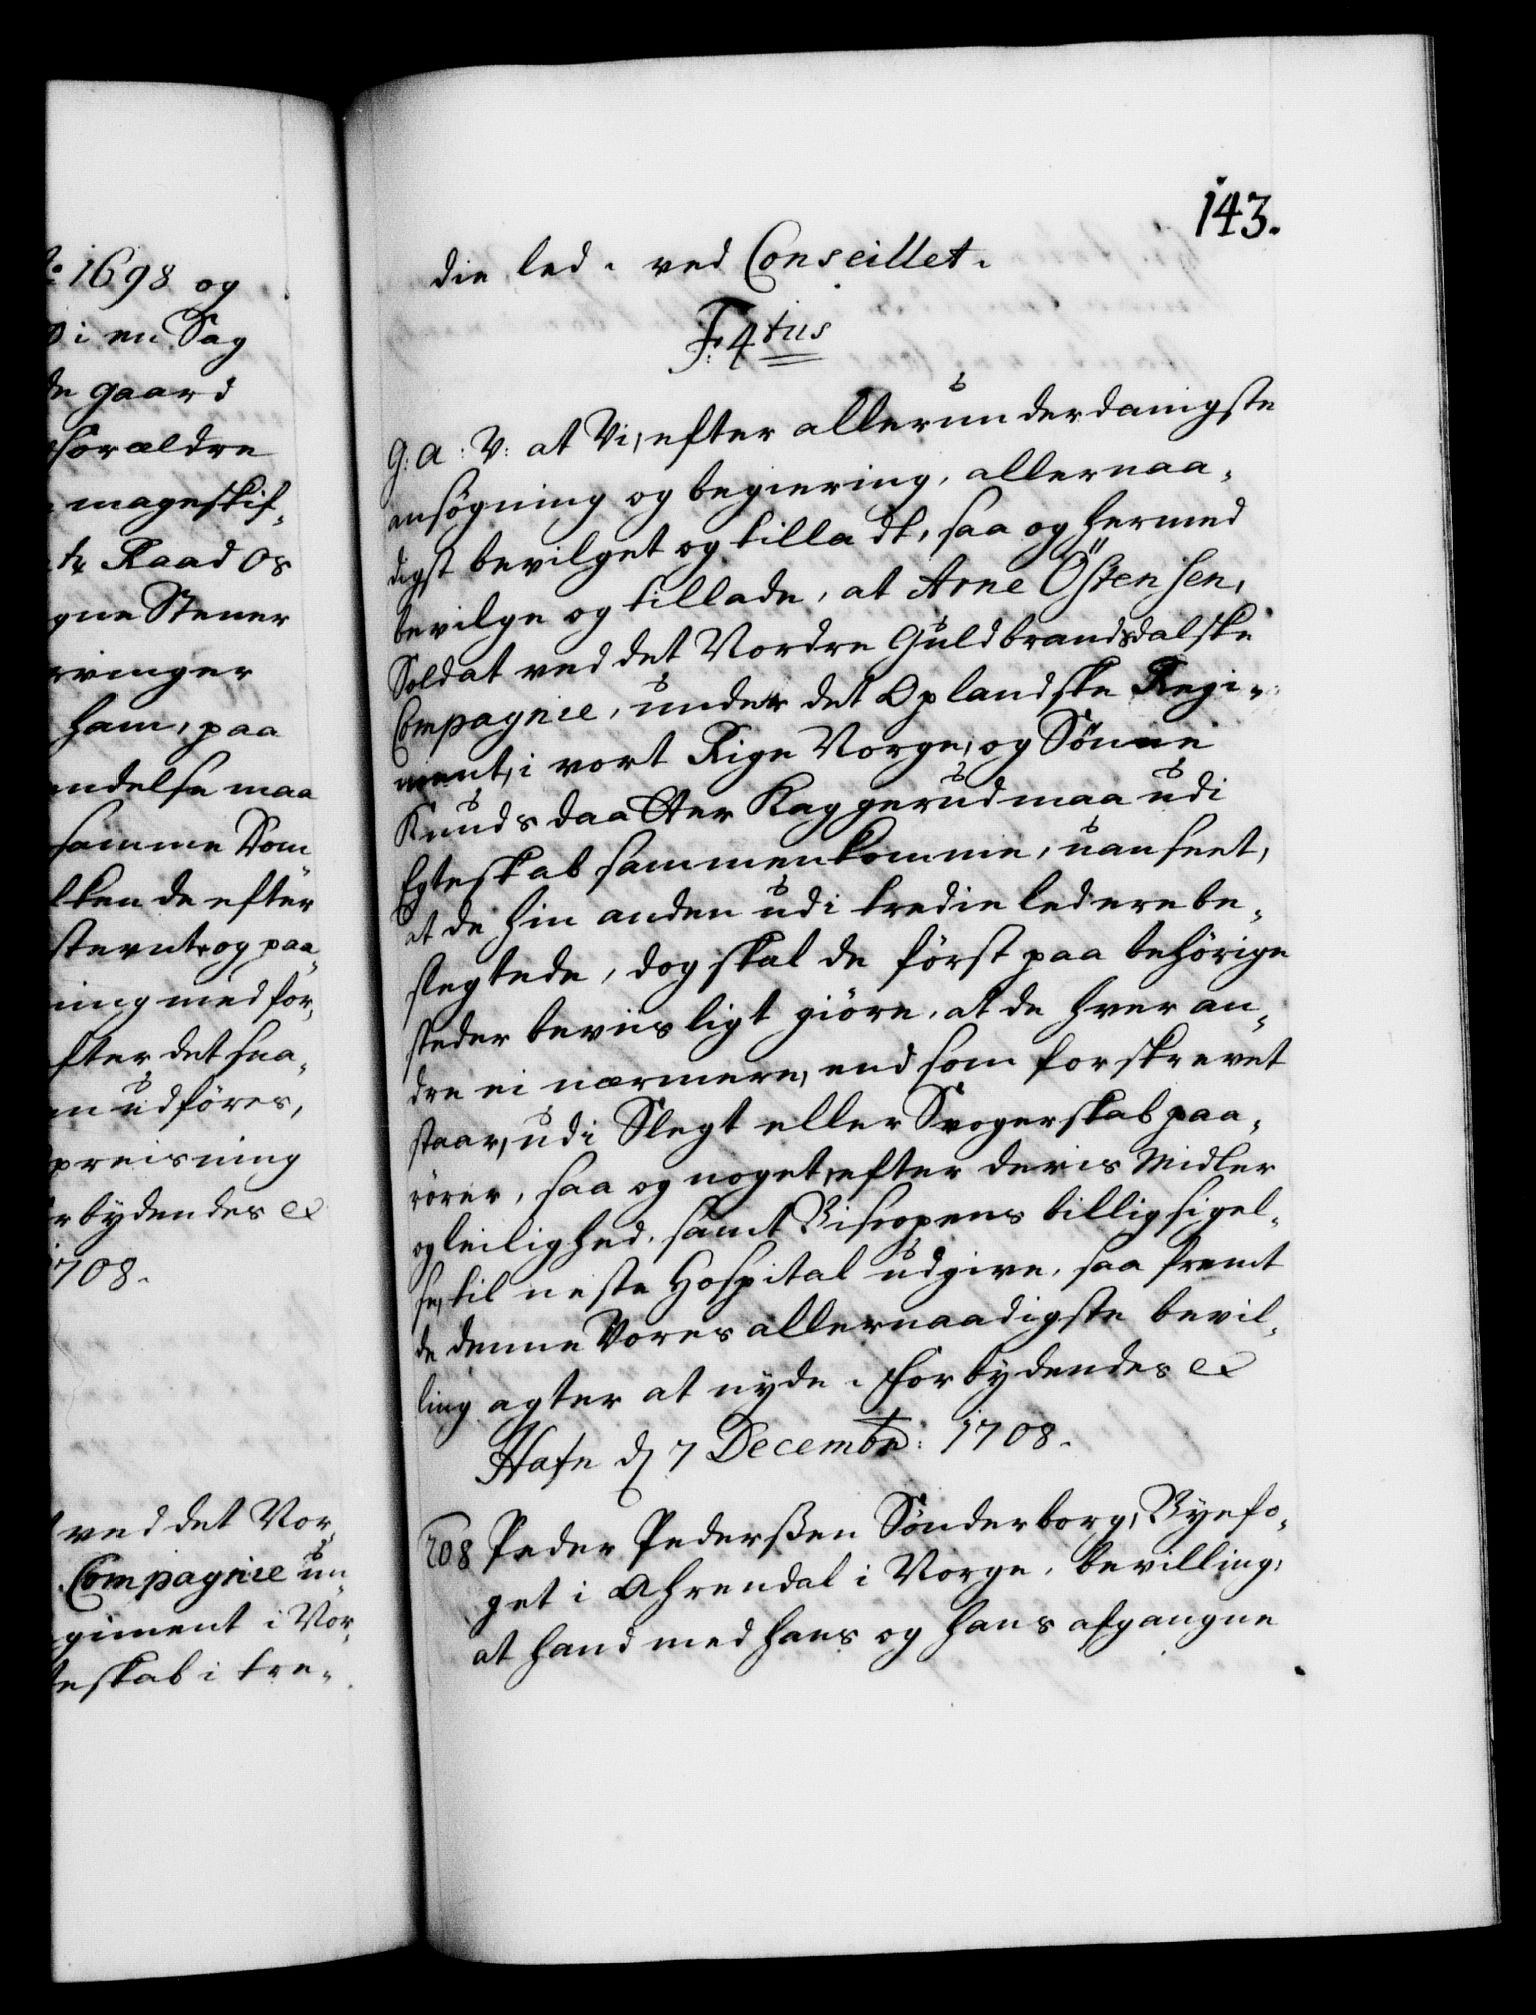 o 1698 og
i en Sag
de gaard
forældre
mageskif,,
te Raad Os
gne Stener
ringer
ham, paa
endelse maa
samme Som
lken de efter
stevnt, og paa,,
ning med for,,
fter det saa,,
en udföres,
preisning
rbydendes &
1708.
ved det Nor,,
Compagnie un,,
giment i Nor,,
teskab i tre,,
143.
die led. ved Conseillet.
F: 4tus
G: A: V: at Vi, efter allerunderdanigste
ansögning og begiering, allernaa,,
digst bevilget og tilladt, saa og hermed
bevilge og tillade, at Arne Östensen,
Soldat ved det Nordre Guldbrandsdalske
Compagnie, under det Oplandske Regi,,
ment, i vort Rige Norge, og Sönne
Knuds daatter Kaggerud maa udi
Egteskab sammenkomme, uanseet,
at de hin anden udi tredie led ere be,,
slegtede, dog skal de först paa behörige
steder beviisligt giöre, at de hver an,,
dre ei nærmere, end som forskrevet
staar, udi Slegt eller Svogerskab paa,,
rörer, saa og noget, efter deris Midler
og leilighed, samt Biscopens billig sigel,,
se, til neste Hospital udgive, saa fremt
de denne Vores allernaadigste bevil,,
ling agter at nyde. Forbydendes &
Hafn d 7 Decembr: 1708.
208 Peder Pederßen Sönderborg, Byefo,,
get i Ahrendal i Norge, bevilling,
at hand med hans og hans afgangne